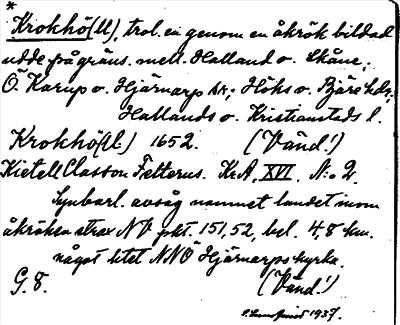 *
Krokhö(ll), trol. en genom en åkrök bildad
udde på gräns. mell. Halland o. Skåne,
Ö. Karup o. Hjärnarp sr; Höks o. Bjäre hdr,
Hallands o. Kristianstads l.
Krokhö(ll) 1652. (Vänd!)
Kietell Classon Felterus. KrA, XVI. N:o 2.
Synbarl. avsåg namnet landet inom
åkröken strax NV pkt. 151,52, bel. 4,8 km.
något litet NNÖ Hjärnarps kyrka.
G. 8. (Vänd!)
1937.